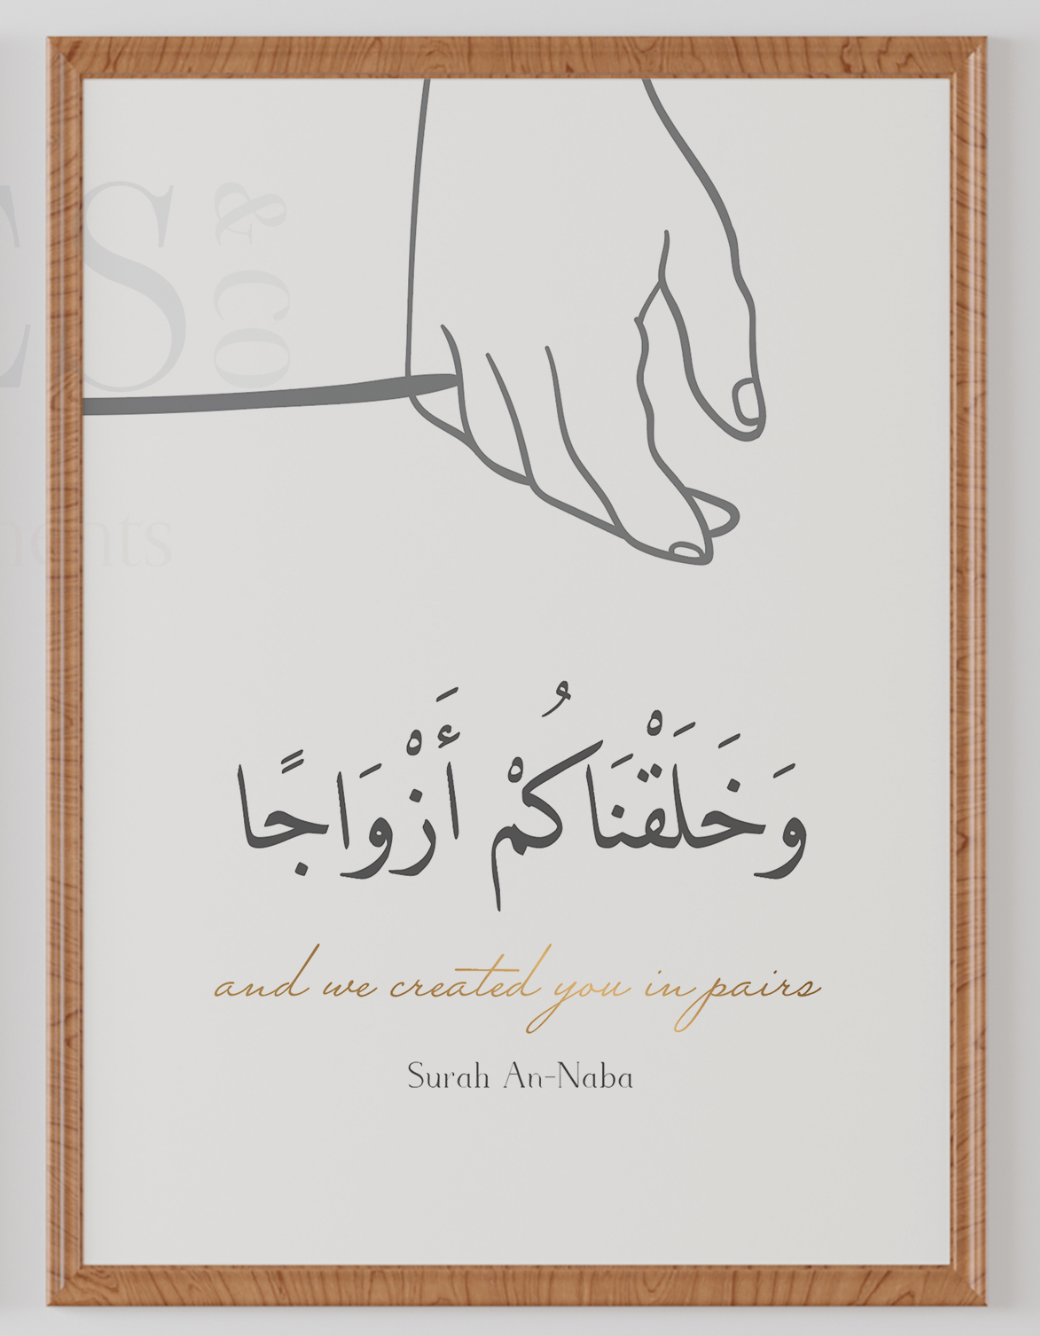 ES & CO
ments
وَخَلَقْنَاكُمْ أَزْوَاجًا
and we created you in pairs
Surah An-Naba